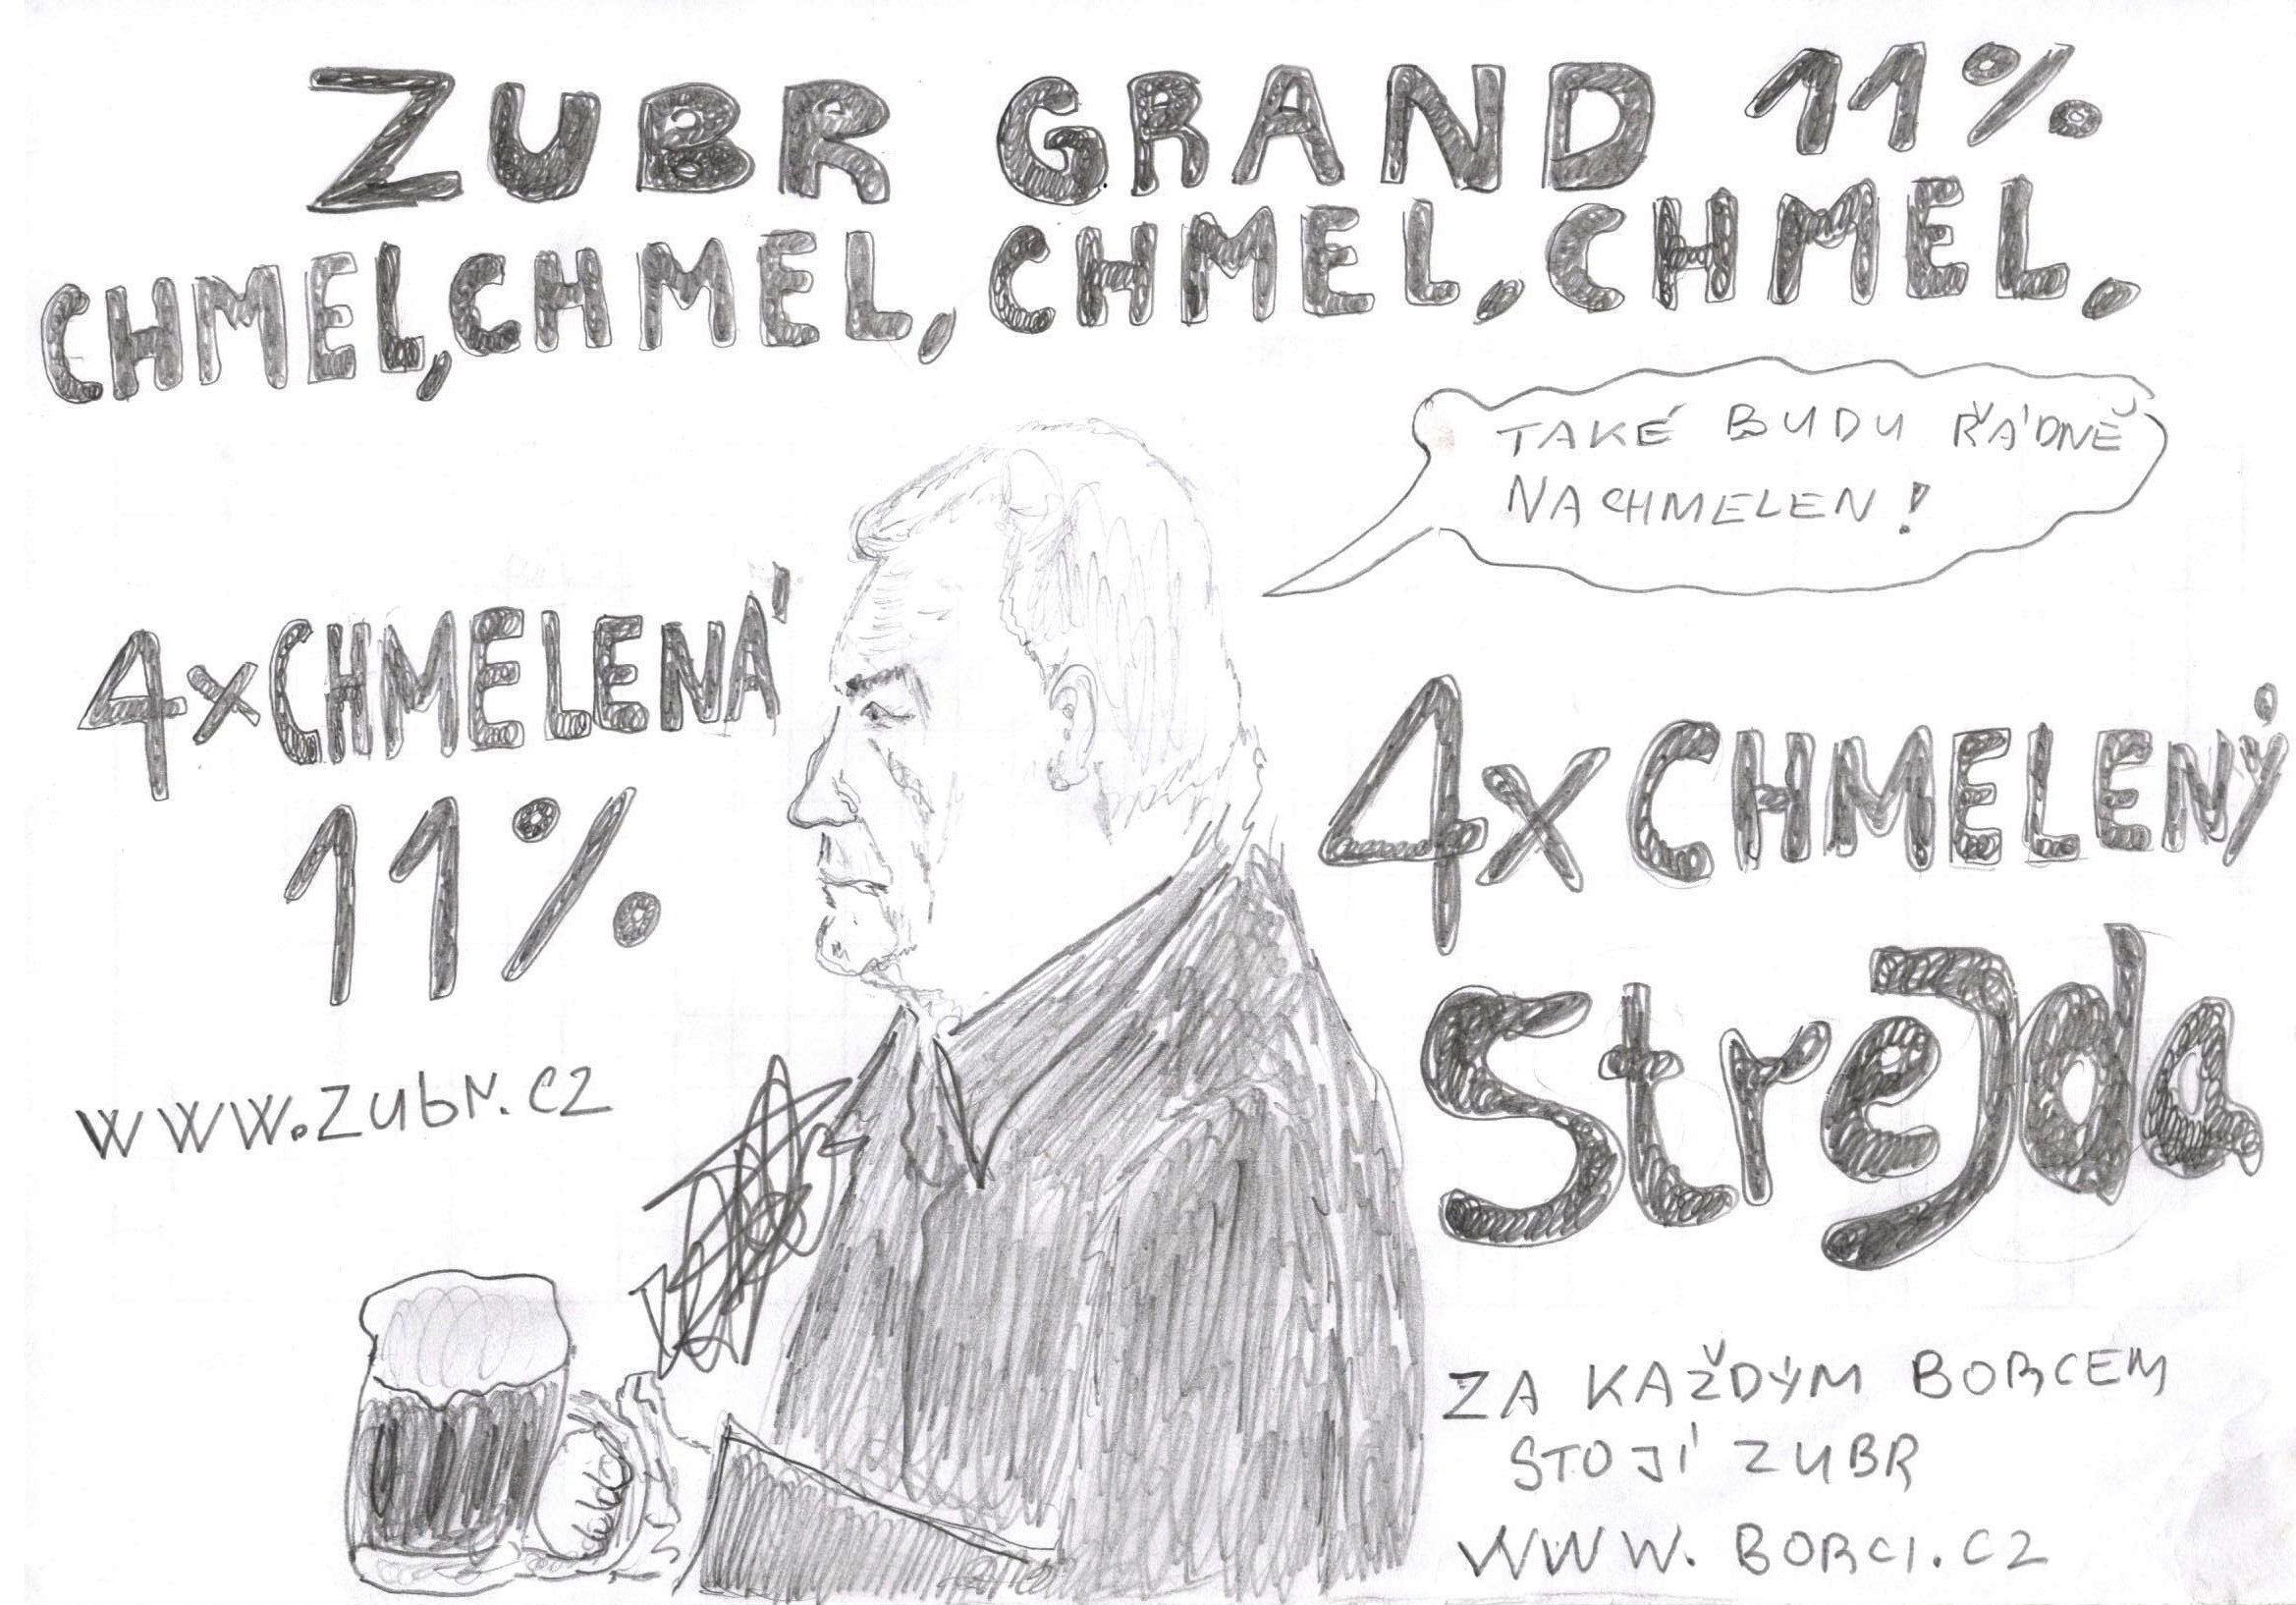 ZUBR GRAND 11%
CHMEL, CHMEL, CHMEL, CHMEL,
TAKÉ BUDU ŘÁDNĚ
NACHMELEN!
4x CHMELENÁ
11%
www.zubr.cz
4x CHMELENÝ
StreJda
ZA KAŽDÝM BORCEM
STOJÍ ZUBR
WWW.BORCI.CZ